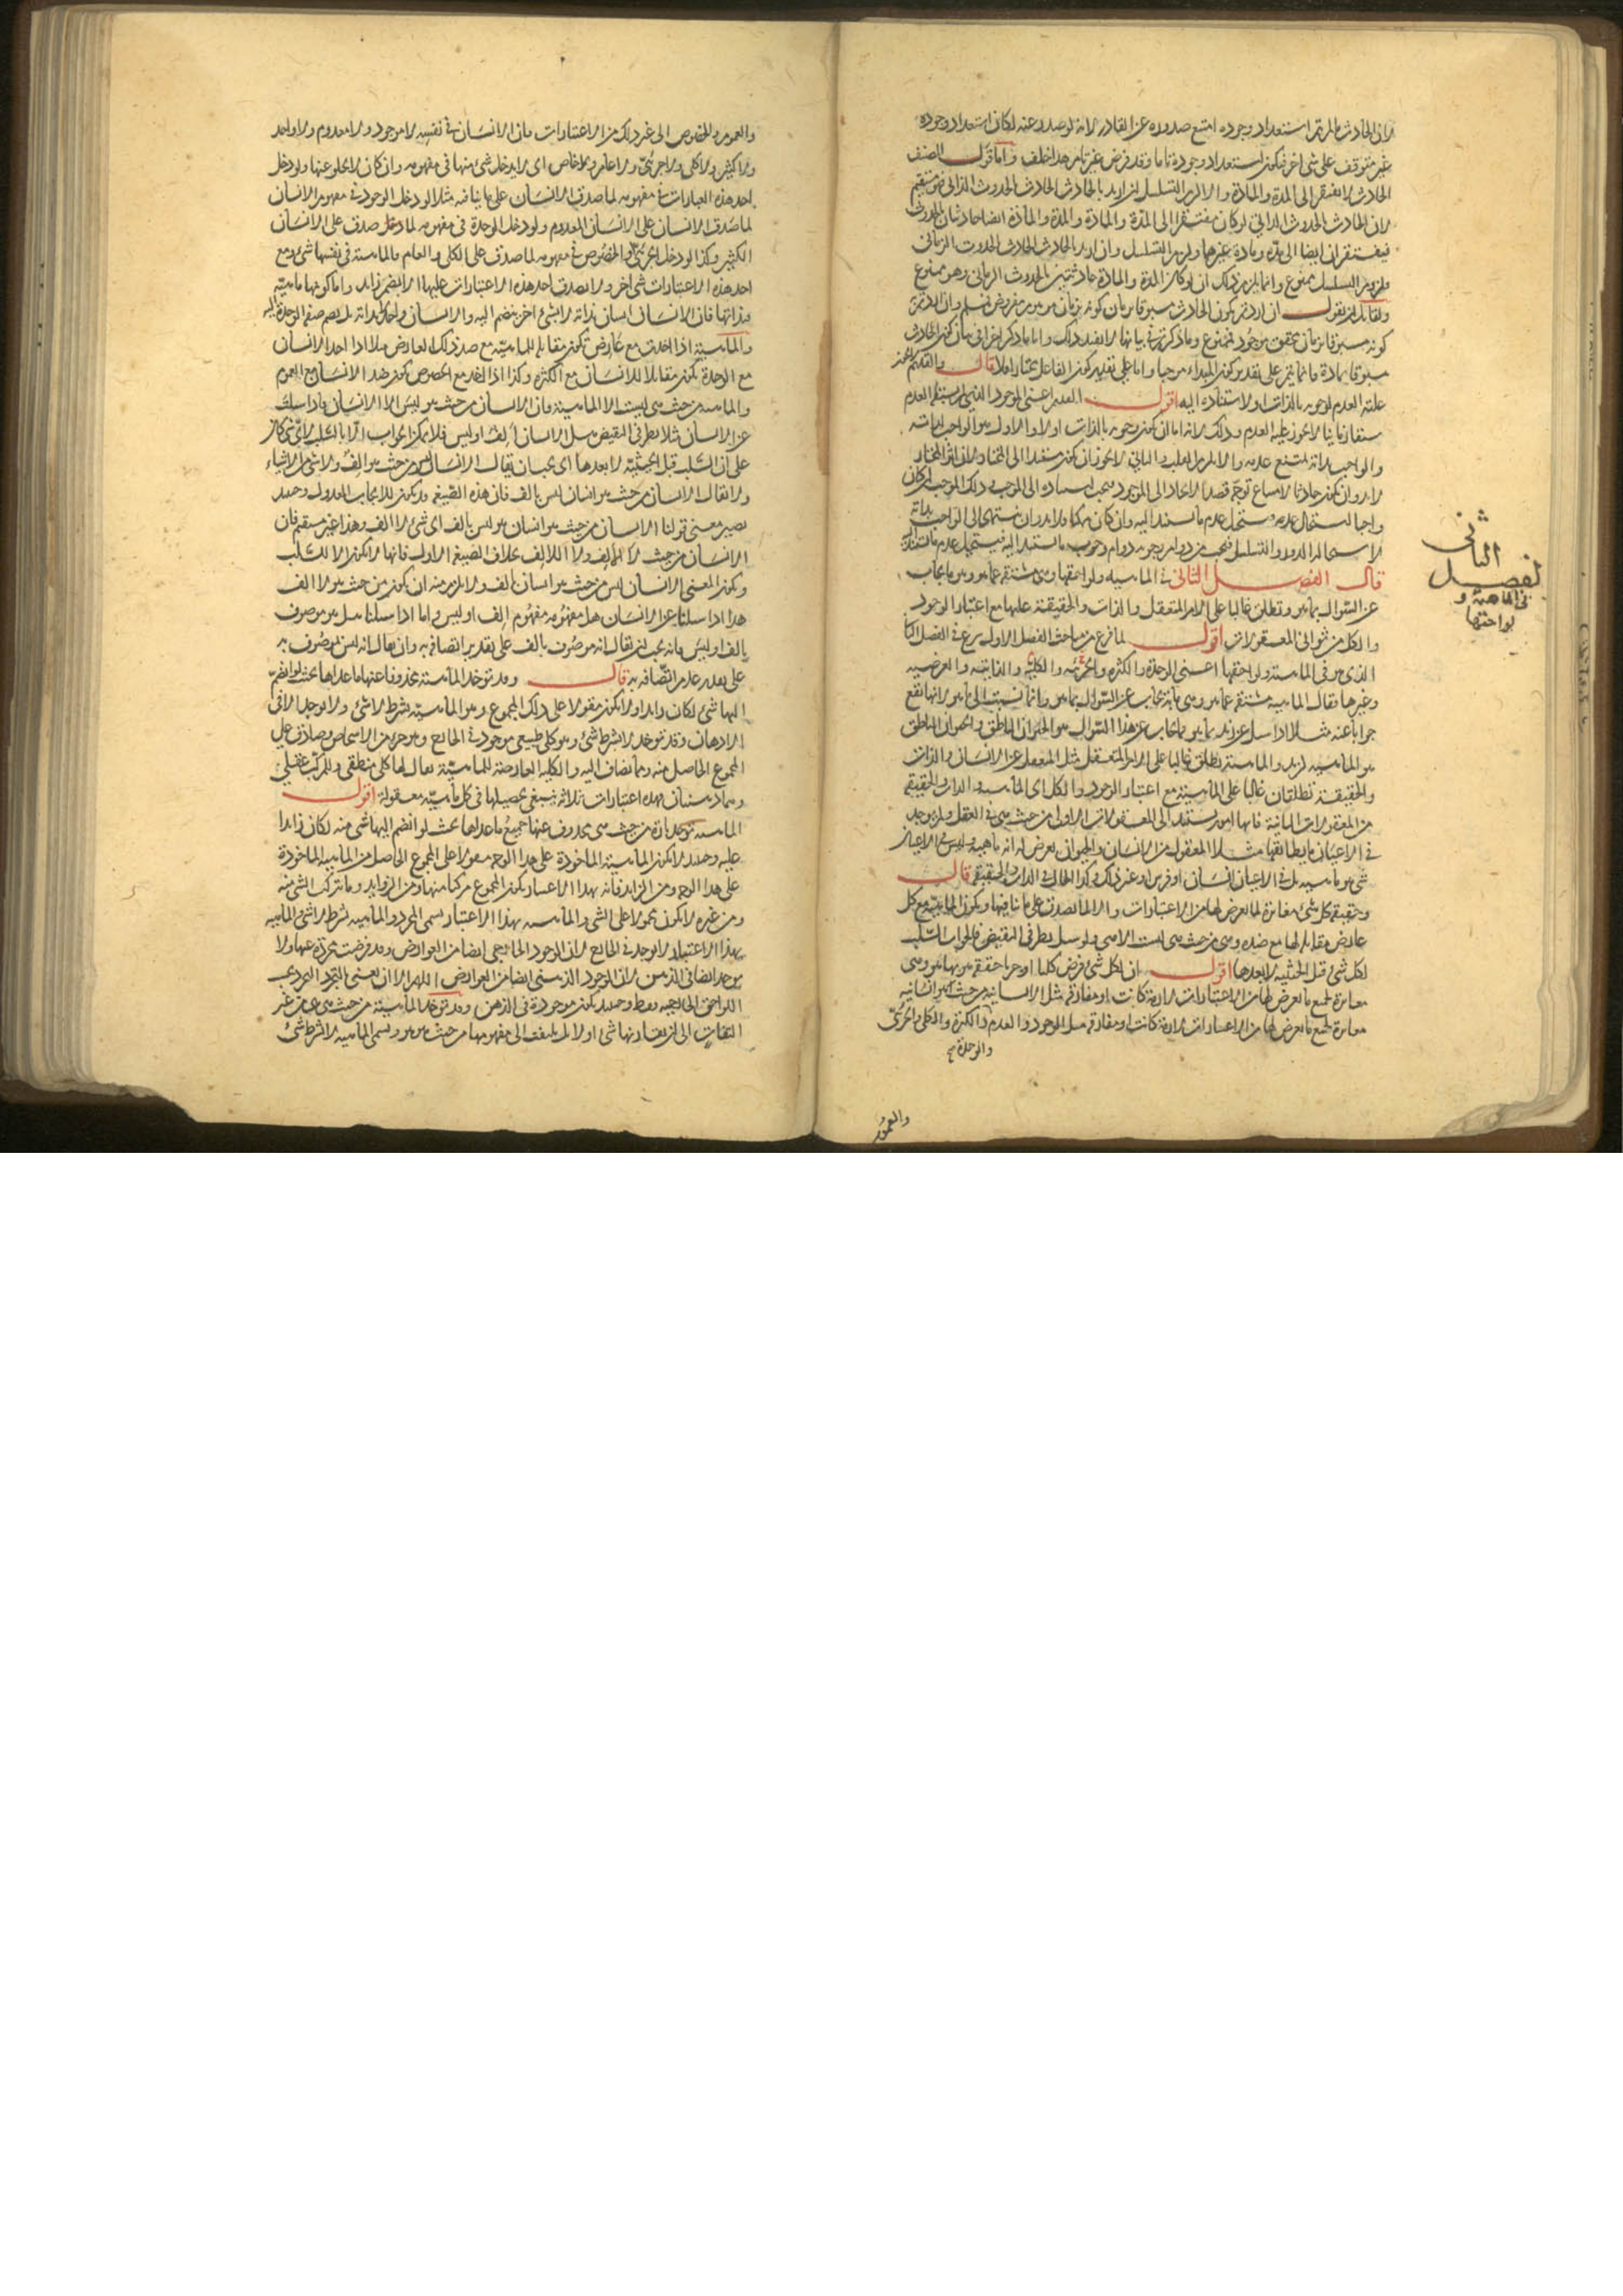 لان الحادث ما لم يتم استعداد وجوده امتنع صدوره عن القادر لانه لو صدر عنه لكان استعداد وجوده
غير متوقف على شى اخر فيكون استعداد وجوده تاما وقد فرض غير تام هذا خلف واما قول المصنف
الحادث لا يفتقر الى المدة والمادة والا لزم التسلسل ان اريد بالحادث الحادث الحدوث الذاتى فهو مستقيم
لان الحادث الحدوث الذاتى لو كان مفتقرا الى المدة والمادة والمدة والمادة ايضا حادثان بالحدوث
فيفتقران ايضا الى مدة ومادة غيرها ولزم التسلسل وان اريد بالحادث الحادث الحدوث الزمانى
فلزوم التسلسل ممنوع وانما يلزم ذلك ان لو كان المدة والمادة حادثتين بالحدوث الزمانى وهو ممنوع
ولقائل ان يقول ان اردتم بكون الحادث مسبوقا بزمان كونه بزمان موهوم مفروض فمسلم وان اردتم
كونه مسبوقا بزمان محقق موجود فممنوع وما ذكرتم فى بيانه لا يفيد ذلك واما ما ذكر اخرا فى بيان كون الحادث
مسبوقا بمادة فانما يتم على تقدير كون المبداء موجبا واما على تقدير كون الفاعل مختارا فلا قال والقديم لا يجوز
عليه العدم لوجوبه بالذات او لاستناده اليه اقول القديم اعنى الموجود الذى لم يسبقه العدم
سبقا زمانيا لا يجوز عليه العدم وذلك لانه اما ان يكون وجوبه بالذات اولا والاول هو الواجب لذاته
والواجب لذاته يمتنع عدمه والا لزم القلب والثانى لا يجوز ان يكون مستندا الى المختار لان اثر المختار
لا بد وان يكون حادثا لامتناع توجه قصد الايجاد الى الموجود فيجب استناده الى الموجب وذلك الموجب ان كان
واجبا استحال عدمه فيستحيل عدم ما يستند اليه وان كان ممكنا فلا بد وان ينتهى الى الواجب بذاته
لاستحالة الدور والتسلسل فيجب من دوام وجوبه دوام وجوب ما استند اليه فيستحيل عدم ما استند اليه
قال الفصل الثانى فى الماهيه ولواحقها وهى مشتقة عما هو وهو ما يجاب
عن السوال بما هو وتطلق غالبا على الامر المتعقل والذات والحقيقة عليها مع اعتبار الوجود
والكل من ثوانى المعقولات اقول لما فرغ من مباحث الفصل الاول شرع فى الفصل الثانى
الذى هو فى الماهيه ولواحقها اعنى الوحدة والكثرة والجزئية والكلية والذاتية والعرضيه
وغيرها فقال الماهيه مشتقة عما هو وهى ما به يجاب عن السوال بما هو وانما نسبت الى ما هو لانها تقع
جوابا عنه مثلا اذا سئل عن زيد بما هو فما يجاب عن هذا السوال هو الحيوان الناطق والحيوان الناطق
هو الماهيه لزيد والماهية تطلق غالبا على الامر المتعقل مثل المتعقل عن الانسان والذات
والحقيقة تطلقان غالبا على الماهية مع اعتبار الوجود والكل اى الماهيه والذات والحقيقة
من المعقولات الثانية فانها امور تستند الى المعقولات الاولى من حيث هى فى العقل ولم يوجد
فى الاعيان ما يطابقها مثلا المعقول من الانسان والحيوان يعرض له انه ماهية وليس فى الاعيان
شى هو ماهيه بل فى الاعيان انسان او فرس او غير ذلك وكذا الحال فى الذات والحقيقة قال
وحقيقة كل شى مغايرة لما يعرض لها من الاعتبارات والا لما يصدق على ما ينافيها ويكون الماهية مع كل
عارض مقابلة لها مع ضده وهى من حيث هى ليست الا هى ولو سئل بطرفى النقيض فالجواب السلب
لكل شى قبل الحيثيه لا بعدها اقول ان لكل شى فرض كليا او جزئيا حقيقة هو بها هو وهى
مغايرة لجميع ما يعرض لها من الاعتبارات لازمة كانت او مفارقة مثل الانسانية من حيث هى انسانية
مغايرة لجميع ما يعرض لها من الاعتبارات لازمة كانت او مفارقة مثل الوجود والعدم والكثرة والكلى والجزئى
والوحدة صح
والعموم
الثانى
لفصيل
فى الماهية و
لواحقها
والعموم والخصوص الى غير ذلك من الاعتبارات فان الانسان فى نفسه لا موجود ولا معدوم ولا واحد
ولا كثير ولا كلى ولا جزئى ولا عام ولا خاص اى لا يدخل شى منها فى مفهومه وان كان لا يخلو عنها ولو دخل
احد هذه العبارات فى مفهومه لما صدق الانسان على ما ينافيه مثلا لو دخل الوجود فى مفهوم الانسان
لما صدق الانسان على الانسان المعدوم ولو دخل الوحدة فى مفهومه لما صدق على الانسان
الكثير وكذا لو دخل الجزئى والخصوص فى مفهومه لما صدق على الكلى والعام فالماهية فى نفسها شى ومع
احد هذه الاعتبارات شى اخر ولا يصدق احد هذه الاعتبارات عليها الا بضم زايد واما كونها ماهية
فبذاتها فان الانسان انسان بذاته لا بشى اخر ينضم اليه والانسان واحد لا بذاته بل بضم صفة الوحدة اليه
والماهية اذا اخذت مع عارض تكون مقابلة للماهية مع ضد ذلك العارض مثلا اذا اخذ الانسان
مع الوحدة يكون مقابلا للانسان مع الكثرة وكذا اذا اخذ مع الخصوص يكون ضد الانسان مع العموم
والماهيه من حيث هى ليست الا الماهية فان الانسان من حيث هو ليس الا الانسان فاذا سئلت
عن الانسان مثلا بطرفى النقيض مثل الانسان الف او ليس فلا يكون الجواب الا بالسلب لاى شى كان
على ان السلب قبل الحيثية لا بعدها اى يجب ان يقال الانسان ليس من حيث هو الف ولا شى من الاشياء
ولا يقال الانسان من حيث هو انسان ليس بالف فان هذه الصيغة قد يكون للايجاب العدول وحينئذ
يصير معنى قولنا الانسان من حيث هو انسان هو ليس بالف اى شى لا الف وهذا غير مستقيم فان
الانسان من حيث لا الالف ولا اللاالف بخلاف الصيغة الاولى فانها لا تكون الا للسلب
ويكون المعنى الانسان ليس من حيث هو انسان بالف ولا يلزم منه ان يكون من حيث هو لا الف
هذا اذا سئلنا عن الانسان هل مفهومه مفهوم الف او ليس واما اذا سئلنا هل هو موصوف
بالف او ليس فانه يجب ان يقال انه موصوف بالف على تقدير اتصافه به وان يقال انه ليس موصوف به
على تقدير عدم اتصافه به قال وقد توخذ الماهية محذوفا عنها ما عداها بحيث لو انضم
اليها شى لكان زايدا ولا يكون مقولا على ذلك المجموع وهو الماهية بشرط لا شى ولا يوجد الا فى
الاذهان وقد توخذ لا بشرط شى وهو كلى طبيعى موجود فى الخارج وهو جزء من الاشخاص وصادق على
المجموع الحاصل منه ومما يضاف اليه والكلية العارضة للماهية يقال لها كلى منطقى والمركب عقلى
وهما ذهنيان فهذه اعتبارات ثلاثة ينبغى تحصيلها فى كل ماهية معقولة اقول
الماهيه توخذ تارة من حيث هى محذوف عنها جميع ما عداها بحيث لو انضم اليها شى منه لكان زايدا
عليه وحينئذ لا يكون الماهية الماخوذة على هذا الوجه مقولا على المجموع الحاصل من الماهيه الماخوذة
على هذا الوجه ومن الزايد فانه بهذا الاعتبار يكون المجموع مركبا منها ومن الزوايد وما يتركب الشى منه
ومن غيره لا يكون محمولا على الشى والماهيه بهذا الاعتبار تسمى المجرد والماهيه بشرط لا شى والماهيه
بهذا الاعتبار لا يوجد فى الخارج لان الوجود الخارجى ايضا من العوارض وقد فرضت مجردة عنها ولا
يوجد ايضا فى الذهن لان الوجود الذهنى ايضا من العوارض اللهم الا ان يعنى بالتجرد التجرد عن
اللواحق الخارجيه فقط وحينئذ يكون موجودة فى الذهن وقد توخذ الماهية من حيث هى هى من غير
التفات الى ان يقارنها شى اولا بل يلتفت الى مفهومها من حيث هو هو ويسمى الماهيه لا بشرط شى